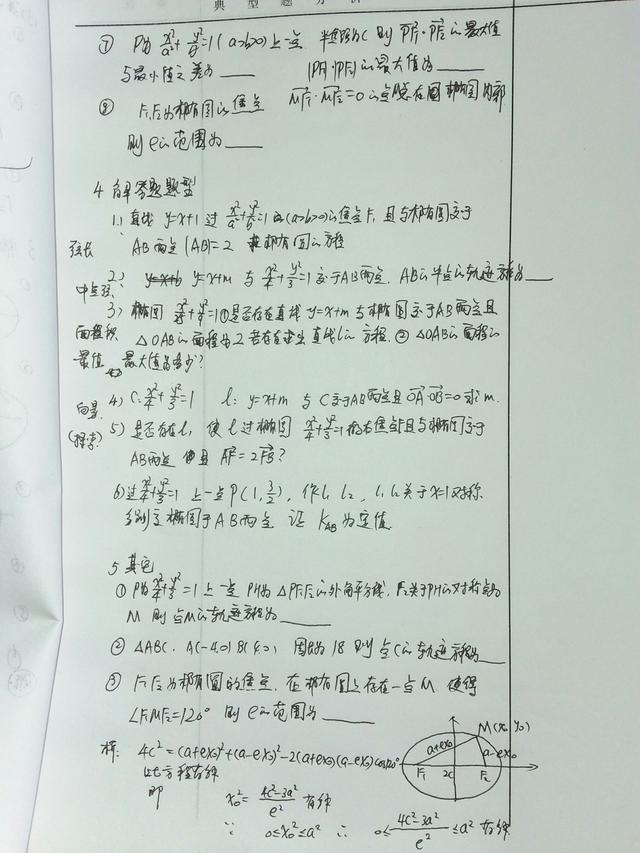 典型题分析
⑦ P为 x²/a²+y²/b²=1(a>b>0)上一点 半焦距为C 则 PF₁·PF₂的最大值
与最小值之差为____ |PF₁||PF₂|的最大值为____
⑧ F₁F₂为椭圆的焦点 MF₁·MF₂=0的点M总在椭圆内部
则e的范围为____
4 解答题题型
弦长 1.) 直线 y=x+1 过 x²/a²+y²/b²=1 (a>b>0)的焦点F₁ 且与椭圆交于
AB两点 |AB|=2 求椭圆的方程
中点弦 2.) y=x+m 与 x²/4+y²/3=1 交于AB两点, AB的中点的轨迹方程为____
3) 椭圆 x²/4+y²/3=1 ①是否存在直线 y=x+m 与椭圆交于AB两点且
面积 △OAB的面积为2 若存在求出直线l的方程. ② △OAB的面积的
最值 最大值为多少?
向量 4) C: x²/4+y²/3=1 l: y=x+m 与C交于AB两点且 OA·OB=0 求m.
(探索) 5) 是否存在l, 使l过椭圆 x²/4+y²/3=1 的右焦点F且与椭圆交于
AB两点 且 AF=2FB?
6) 过 x²/4+y²/3=1 上一点P(1, 3/2), 作l₁ l₂, l₁ l₂关于x=1对称
分别交椭圆于AB两点 证 K_AB为定值
5 其它
① P为 x²/4+y²/3=1 上一点 PH为△PF₁F₂的外角平分线, F₂关于PH的对称点为
M 则点M的轨迹方程为____
② △ABC. A(-4,0) B(4,0) 周长为18 则点C的轨迹方程为____
③ F₁F₂为椭圆的焦点, 在椭圆上存在一点M 使得
∠F₁MF₂=120° 则e的范围为____
4C²=(a+ex₀)²+(a-ex₀)²-2(a+ex₀)(a-ex₀)cos120°
此方程有解
即 x₀²=(4C²-3a²)/e² 有解
∵ 0≤x₀²≤a² ∴ 0≤(4C²-3a²)/e²≤a² 有解
M(x₀ y₀)
a+ex₀
a-ex₀
F₁ 2C F₂